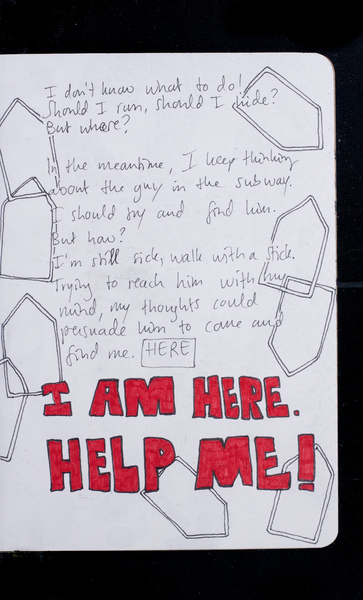 I don't know what to do!
Should I run, should I hide?
But where?
In the meantime, I keep thinking
about the guy in the subway.
I should try and find him.
But how?
I'm still sick, walk with a stick.
Trying to reach him with my
mind, my thoughts could
persuade him to come and
find me. HERE
I AM HERE.
HELP ME!